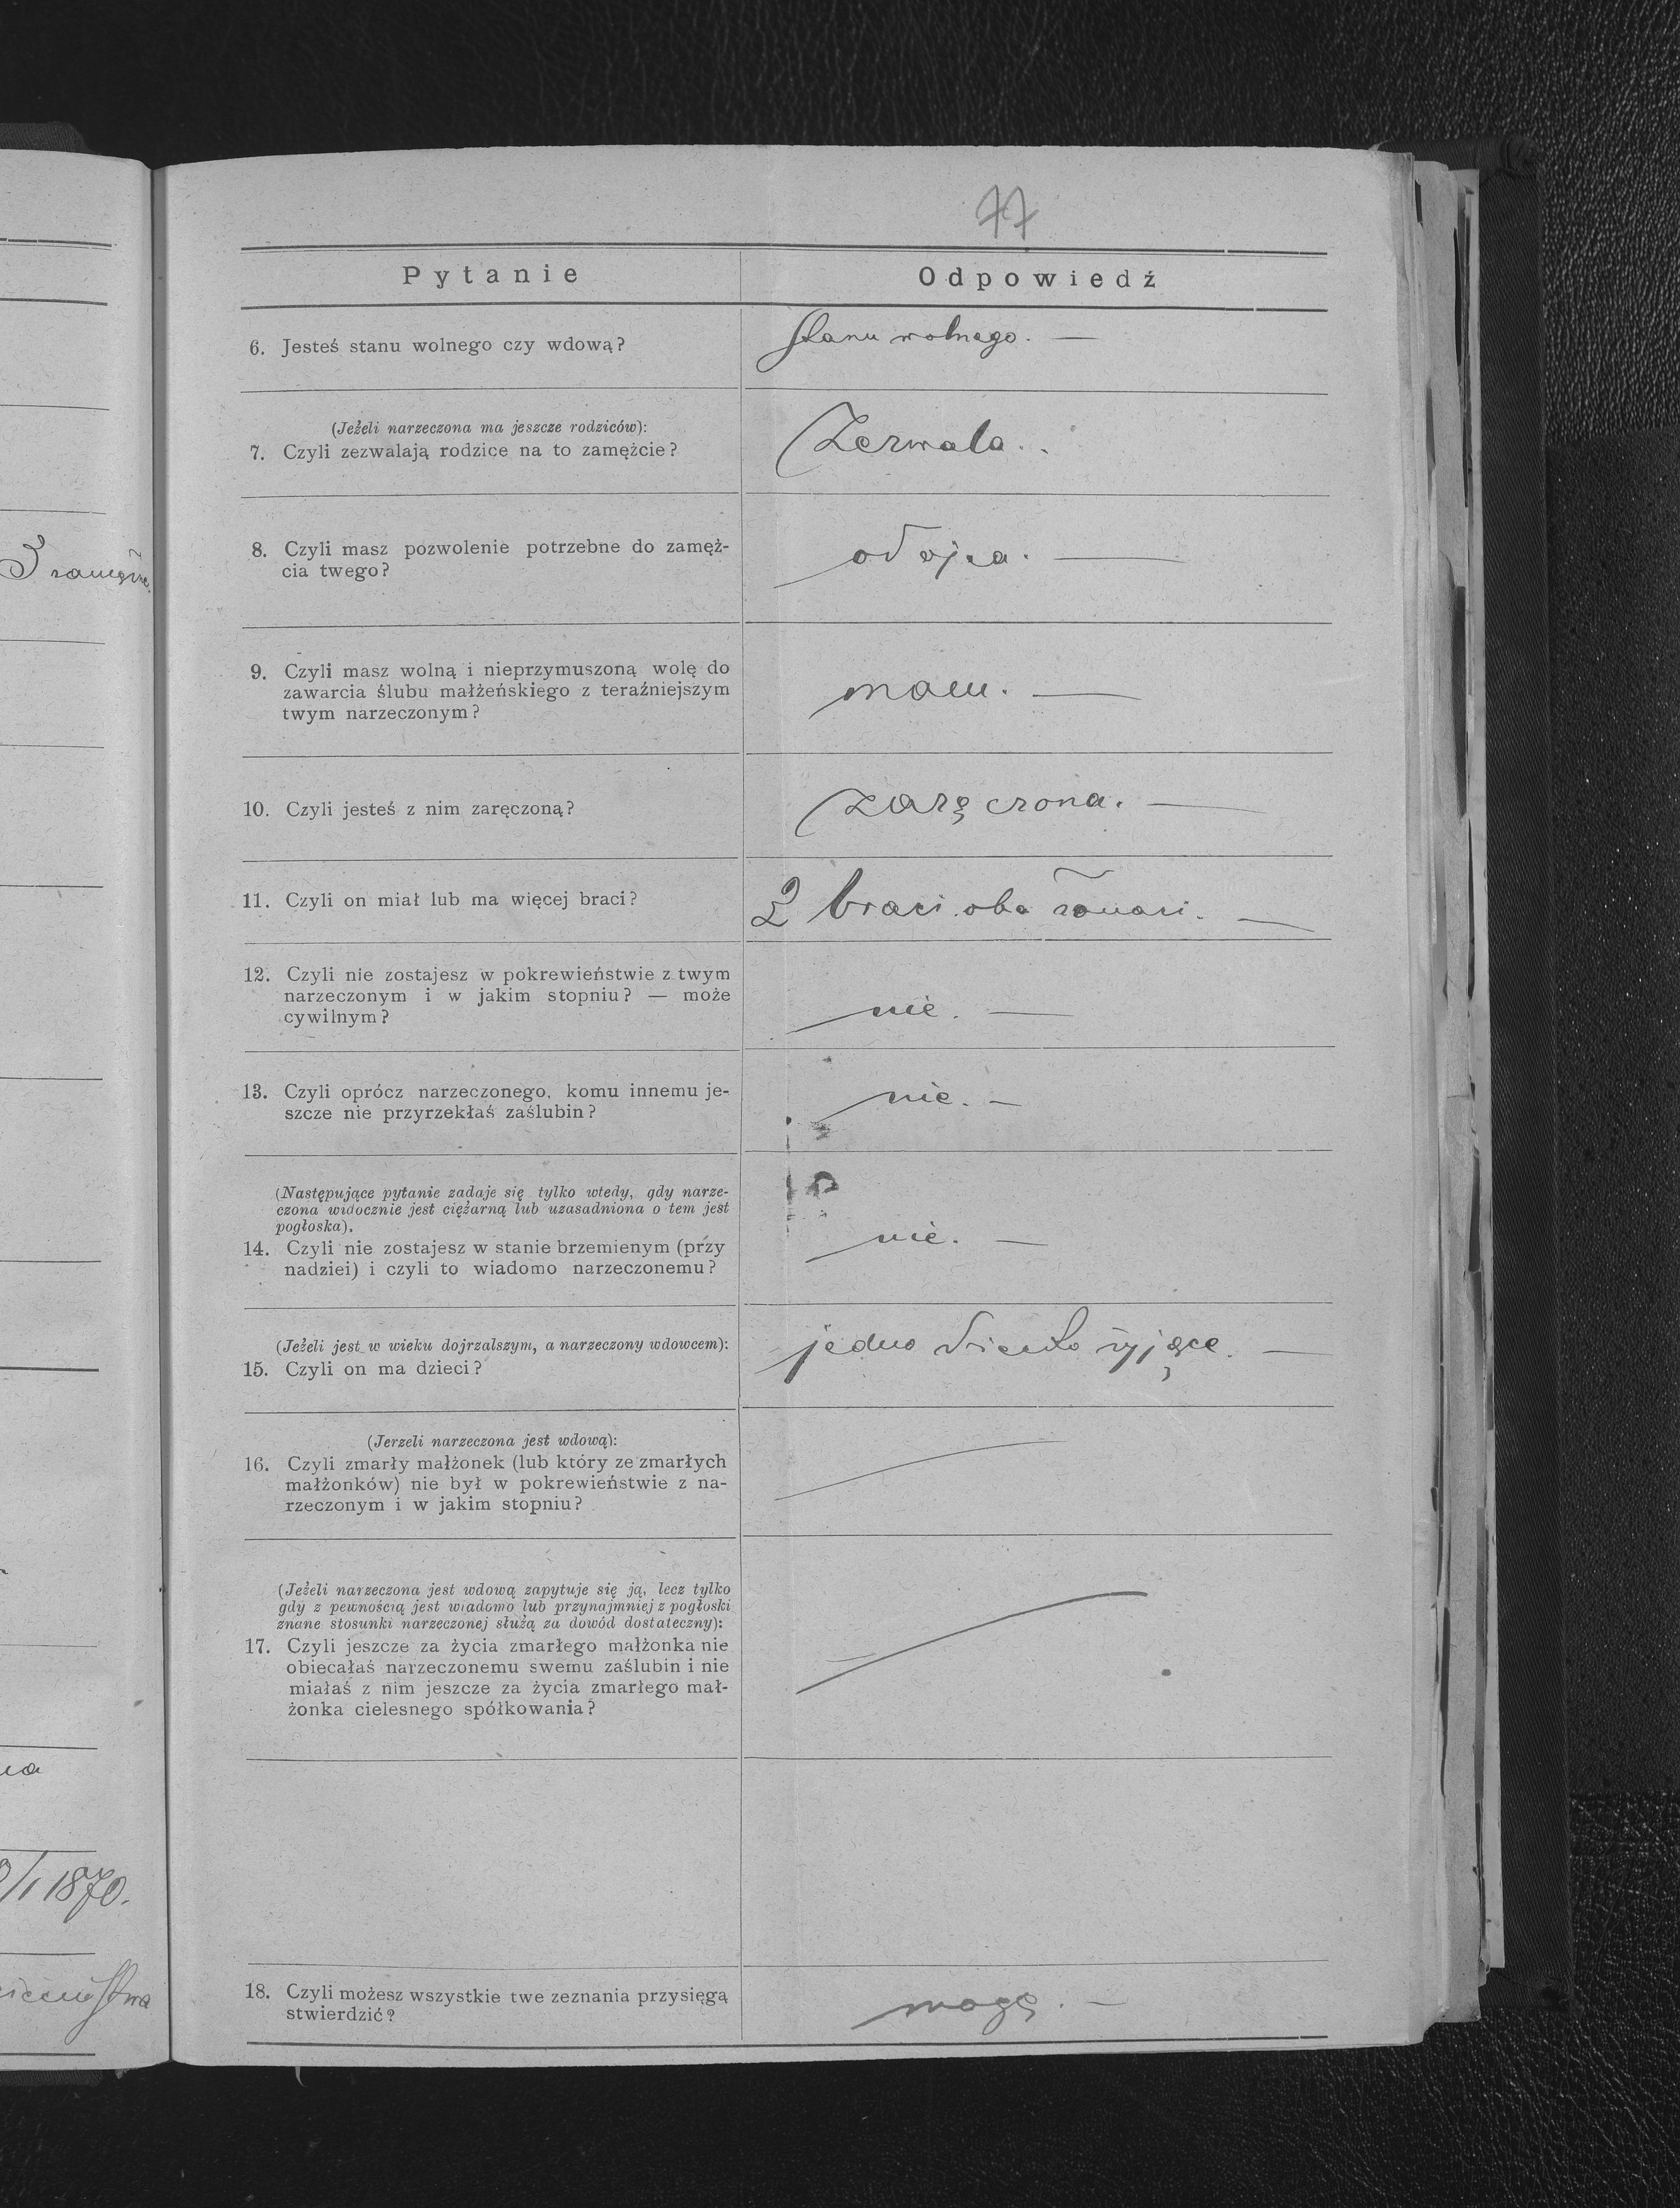 77
Pytanie
Odpowiedź
6. Jesteś stanu wolnego czy wdową?
Stanu wolnego. —
(Jeżeli narzeczona ma jeszcze rodziców):
7. Czyli zezwalają rodzice na to zamężcie?
Zezwala.
8. Czyli masz pozwolenie potrzebne do zamęż-
cia twego?
od ojca. —
9. Czyli masz wolną i nieprzymuszoną wolę do
zawarcia ślubu małżeńskiego z teraźniejszym
twym narzeczonym?
mam. —
10. Czyli jesteś z nim zaręczoną?
zaręczona. —
11. Czyli on miał lub ma więcej braci?
2 braci oba żonaci. —
12. Czyli nie zostajesz w pokrewieństwie z twym
narzeczonym i w jakim stopniu? — może
cywilnym?
nie. —
13. Czyli oprócz narzeczonego, komu innemu je-
szcze nie przyrzekłaś zaślubin?
nie. —
(Następujące pytanie zadaje się tylko wtedy, gdy narze-
czona widocznie jest ciężarną lub uzasadniona o tem jest
pogłoska).
14. Czyli nie zostajesz w stanie brzemienym (przy
nadziei) i czyli to wiadomo narzeczonemu?
nie. —
(Jeżeli jest w wieku dojrzalszym, a narzeczony wdowcem):
15. Czyli on ma dzieci?
jedno dziecko żyjące. —
(Jerzeli narzeczona jest wdową):
16. Czyli zmarły małżonek (lub który ze zmarłych
małżonków) nie był w pokrewieństwie z na-
rzeczonym i w jakim stopniu?
(Jeżeli narzeczona jest wdową zapytuje się ją, lecz tylko
gdy z pewnością jest wiadomo lub przynajmniej z pogłoski
znane stosunki narzeczonej służą za dowód dostateczny):
17. Czyli jeszcze za życia zmarłego małżonka nie
obiecałaś narzeczonemu swemu zaślubin i nie
miałaś z nim jeszcze za życia zmarłego mał-
żonka cielesnego spółkowania?
18. Czyli możesz wszystkie twe zeznania przysięgą
stwierdzić?
mogę. —
1870.